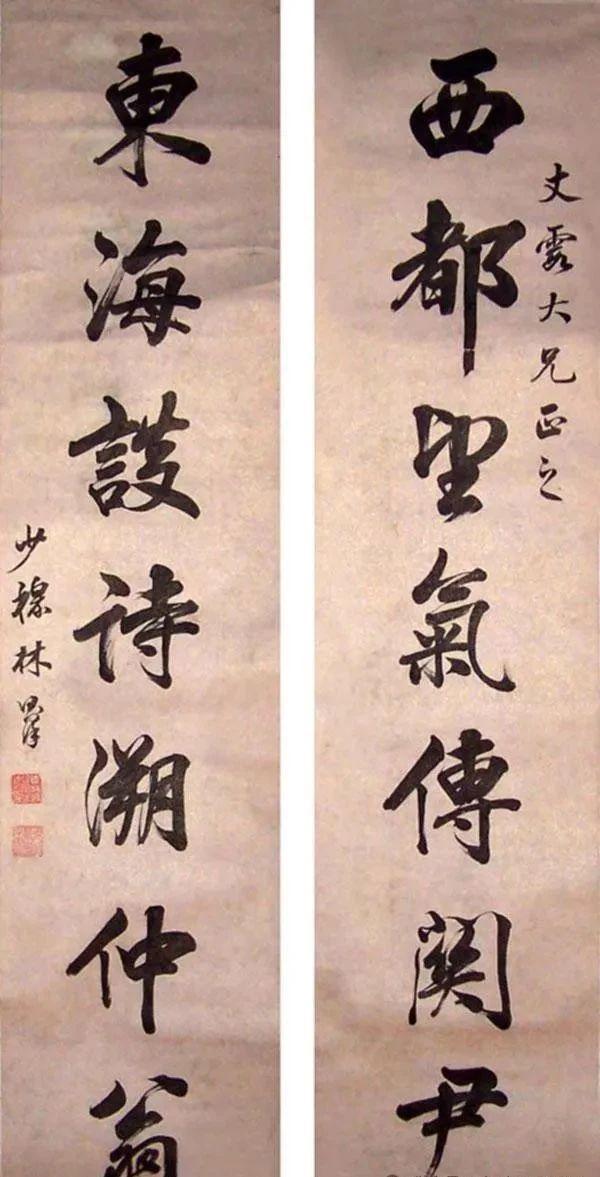 文霞大兄正之
西都望氣傳關尹
東海詩溯仲翁
少穆林則徐